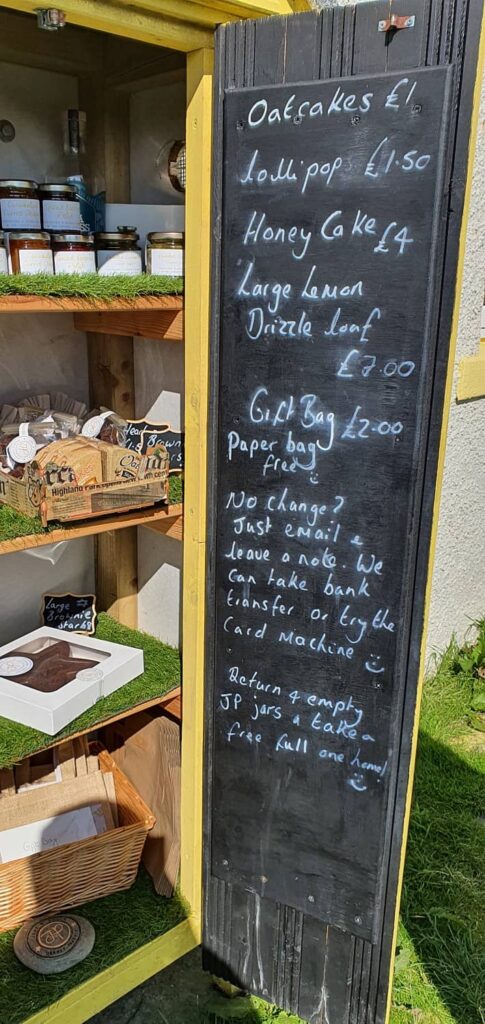 Oatcakes £1
Lollipop £1.50
Honey Cake £4
Large Lemon
Drizzle Loaf
£7.00
Gift Bag £2.00
Paper bag
free
No change?
Just email &
leave a note. We
can take bank
transfer or try the
Card Machine
Return 4 empty
JP jars & take a
free full one home!
Heart
Brown
Large
Brownie
Star
Highland Park
JP